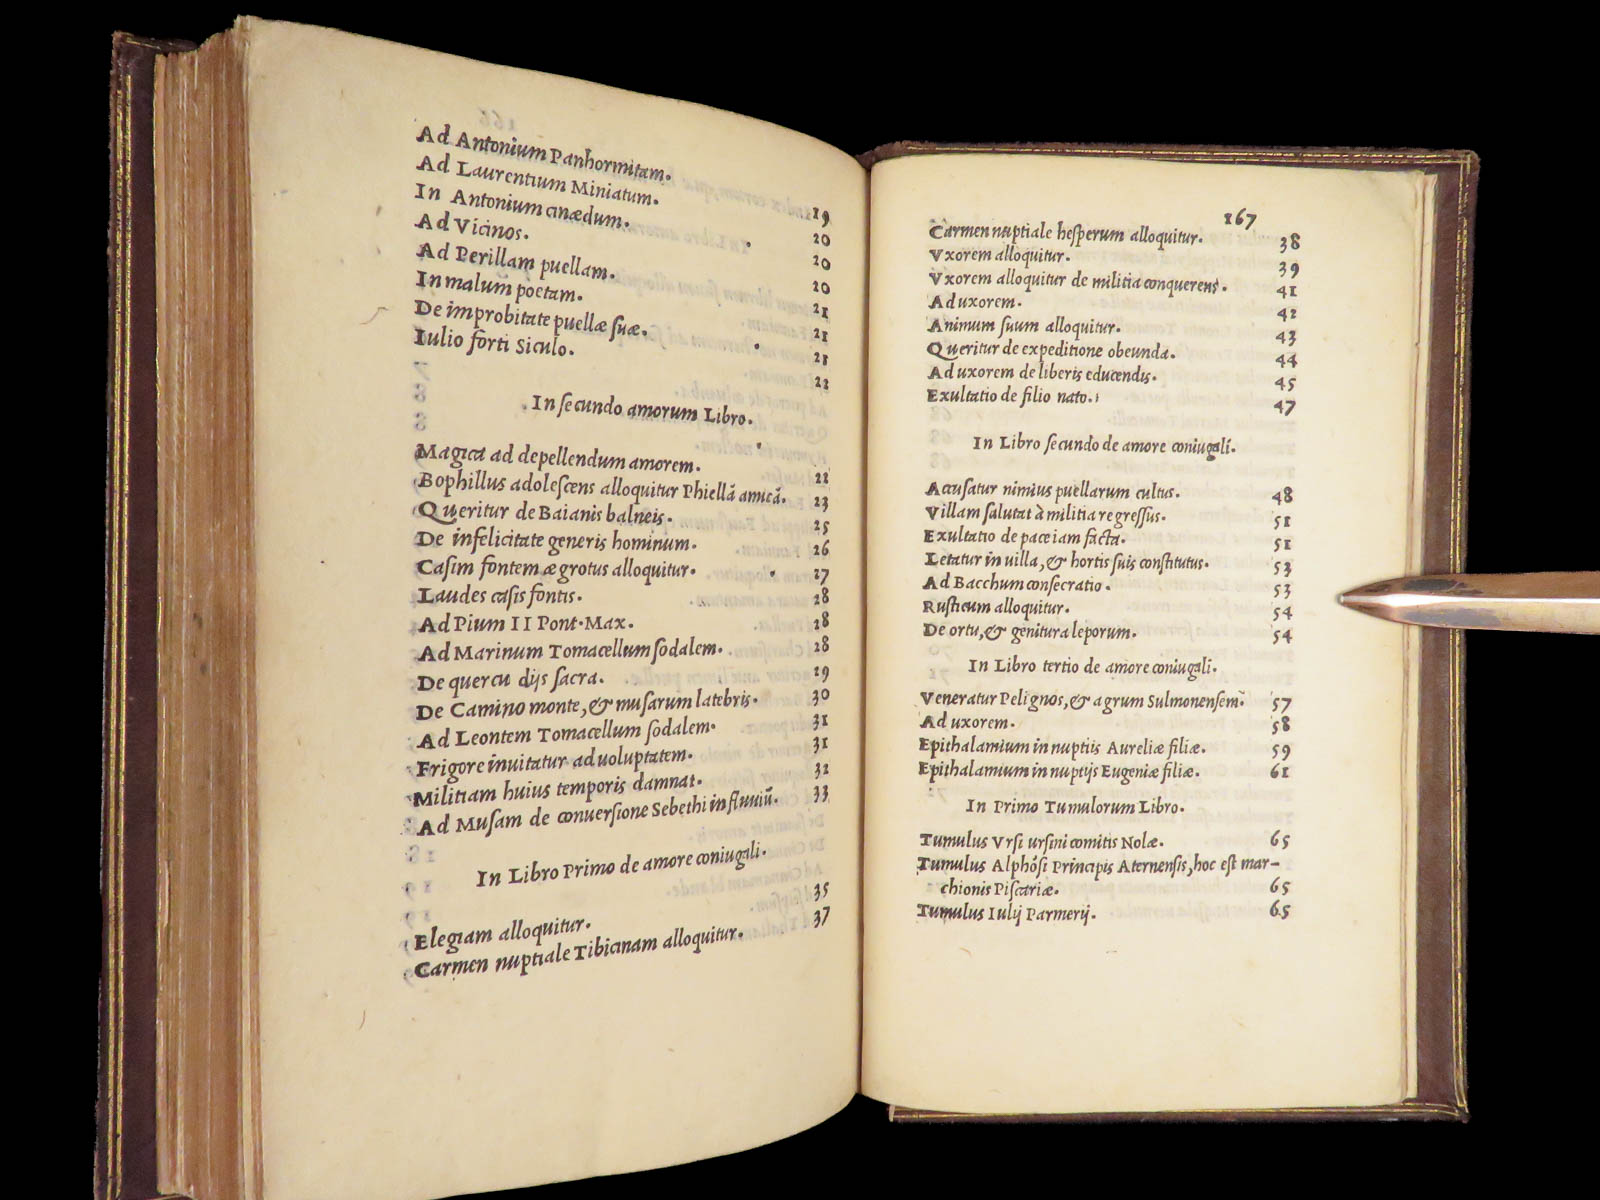 Ad Antonium Panhormitam. 19
Ad Laurentium Miniatum. 20
In Antonium cinædum. 20
Ad Vicinos. 20
Ad Perillam puellam. 21
In malum poetam. 21
De improbitate puellæ suæ. 21
Iulio forti Siculo. 22
In secundo amorum Libro.
Magica ad depellendum amorem. 22
Bophillus adolescens alloquitur Phiellā amicā. 23
Queritur de Baianis balneis. 25
De infelicitate generis hominum. 26
Casim fontem ægrotus alloquitur. 27
Laudes casis fontis. 28
Ad Pium II Pont. Max. 28
Ad Marinum Tomacellum sodalem. 28
De quercu dijs sacra. 29
De Camino monte, & musarum latebris. 30
Ad Leontem Tomacellum sodalem. 31
Frigore inuitatur ad uoluptatem. 31
Militiam huius temporis damnat. 32
Ad Musam de conuersione Sebethi in fluuiū. 33
In Libro Primo de amore coniugali.
Elegiam alloquitur. 35
Carmen nuptiale Tibicinam alloquitur. 37
167
Carmen nuptiale hesperum alloquitur. 38
Vxorem alloquitur. 39
Vxorem alloquitur de militia conquerens. 41
Ad uxorem. 42
Animum suum alloquitur. 43
Queritur de expeditione obeunda. 44
Ad uxorem de liberis educendis. 45
Exultatio de filio nato. 47
In Libro secundo de amore coniugali.
Accusatur nimius puellarum cultus. 48
Villam salutat à militia regressus. 51
Exultatio de pace iam facta. 51
Letatur in uilla, & hortis suis constitutus. 53
Ad Bacchum consecratio. 53
Rusticum alloquitur. 54
De ortu, & genitura leporum. 54
In Libro tertio de amore coniugali.
Veneratur Pelignos, & agrum Sulmonensem. 57
Ad uxorem. 58
Epithalamium in nuptijs Aureliæ filiæ. 59
Epithalamium in nuptijs Eugeniæ filiæ. 61
In Primo Tumulorum Libro.
Tumulus Vrsi ursini comitis Nolæ. 65
Tumulus Alphōsi Principis Aternensis, hoc est mar-
chionis Piscariæ. 65
Tumulus Iulij Parmerij. 65